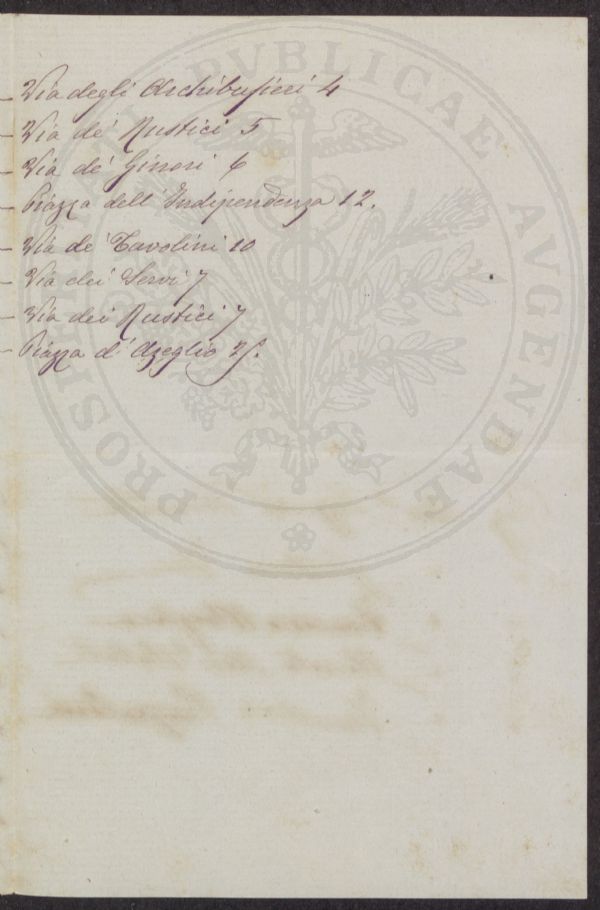 – Via degli Archibusieri 4
– Via de' Rustici 5
– Via de' Ginori 6
– Piazza dell' Indipendenza 12.
– Via de' Tavolini 10
– Via dei Servi 7
– Via dei Rustici 7
– Piazza d' Azeglio 25.
PROSPERITATI PVBLICAE AVGENDAE